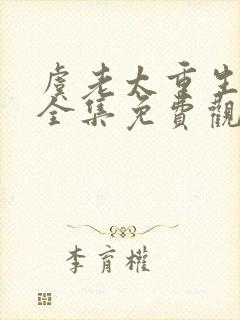 虞老太重生
全集免費觀
李育權